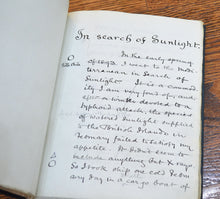 In search of Sunlight.
In the early spring
of 1893 I went to the Medi-
terranean in Search of
Sunlight. It is a comod-
ity I am very fond of, and
after a winter devoted to a
typhoid allowance, the species
of watered Sunlight supplied
to the British Islands in
January failed to satisfy my
appetite. It didn't seem to
include anything but X rays
So I took ship one cold Febru
ary day in a cargo boat of